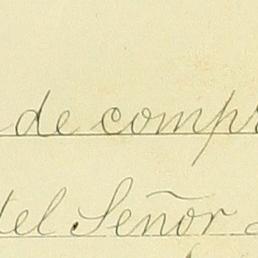 de compr
del Señor